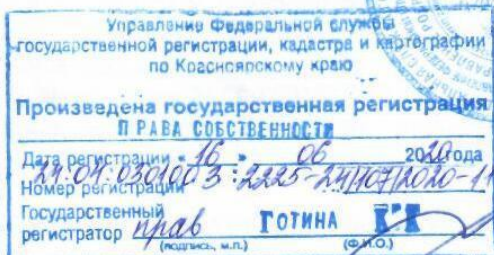 Управление Федеральной службы
государственной регистрации, кадастра и картографии
по Красноярскому краю
Произведена государственная регистрация
ПРАВА СОБСТВЕННОСТИ
Дата регистрации « 16 » 06 2020 года
Номер регистрации 24:04:0301003:2225-24/107/2020-1
Государственный
регистратор прав ГОТИНА
(подпись, м.п.) (Ф.И.О.)